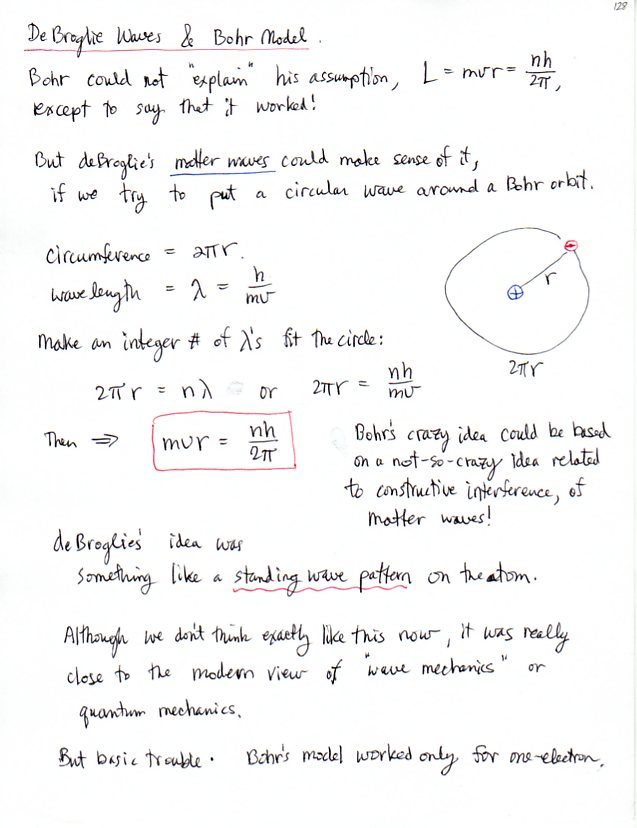 128
DeBroglie Waves & Bohr Model.
Bohr could not "explain" his assumption, L = mvr = nh/2π,
except to say that it worked!
But deBroglie's matter waves could make sense of it,
if we try to put a circular wave around a Bohr orbit.
circumference = 2πr.
wavelength = λ = h/mv
r
Make an integer # of λ's fit the circle:
2πr
2πr = nλ or 2πr = nh/mv
Then ⇒ mvr = nh/2π
Bohr's crazy idea could be based
on a not-so-crazy idea related
to constructive interference, of
matter waves!
deBroglie's idea was
something like a standing wave pattern on the atom.
Although we don't think exactly like this now, it was really
close to the modern view of "wave mechanics" or
quantum mechanics.
But basic trouble. Bohr's model worked only for one-electron.